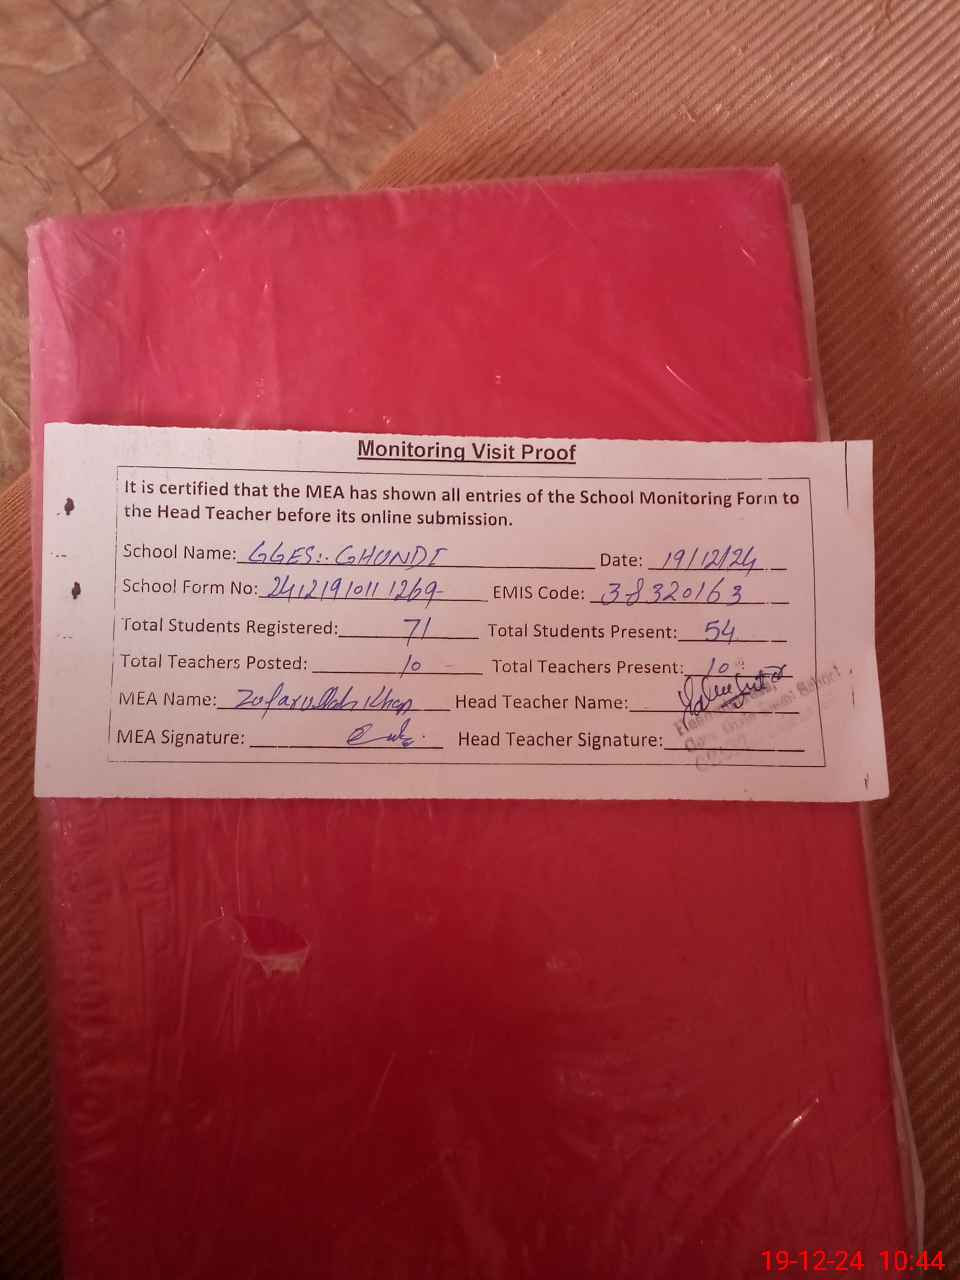 Monitoring Visit Proof
It is certified that the MEA has shown all entries of the School Monitoring Form to
the Head Teacher before its online submission.
School Name: GGES:. GHUNDI Date: 19/12/24
School Form No: 2412191011 1269 EMIS Code: 38320163
Total Students Registered: 71 Total Students Present: 54
Total Teachers Posted: 10 Total Teachers Present: 10
MEA Name: Zafarullah Khan Head Teacher Name:
MEA Signature: Head Teacher Signature:
19-12-24 10:44